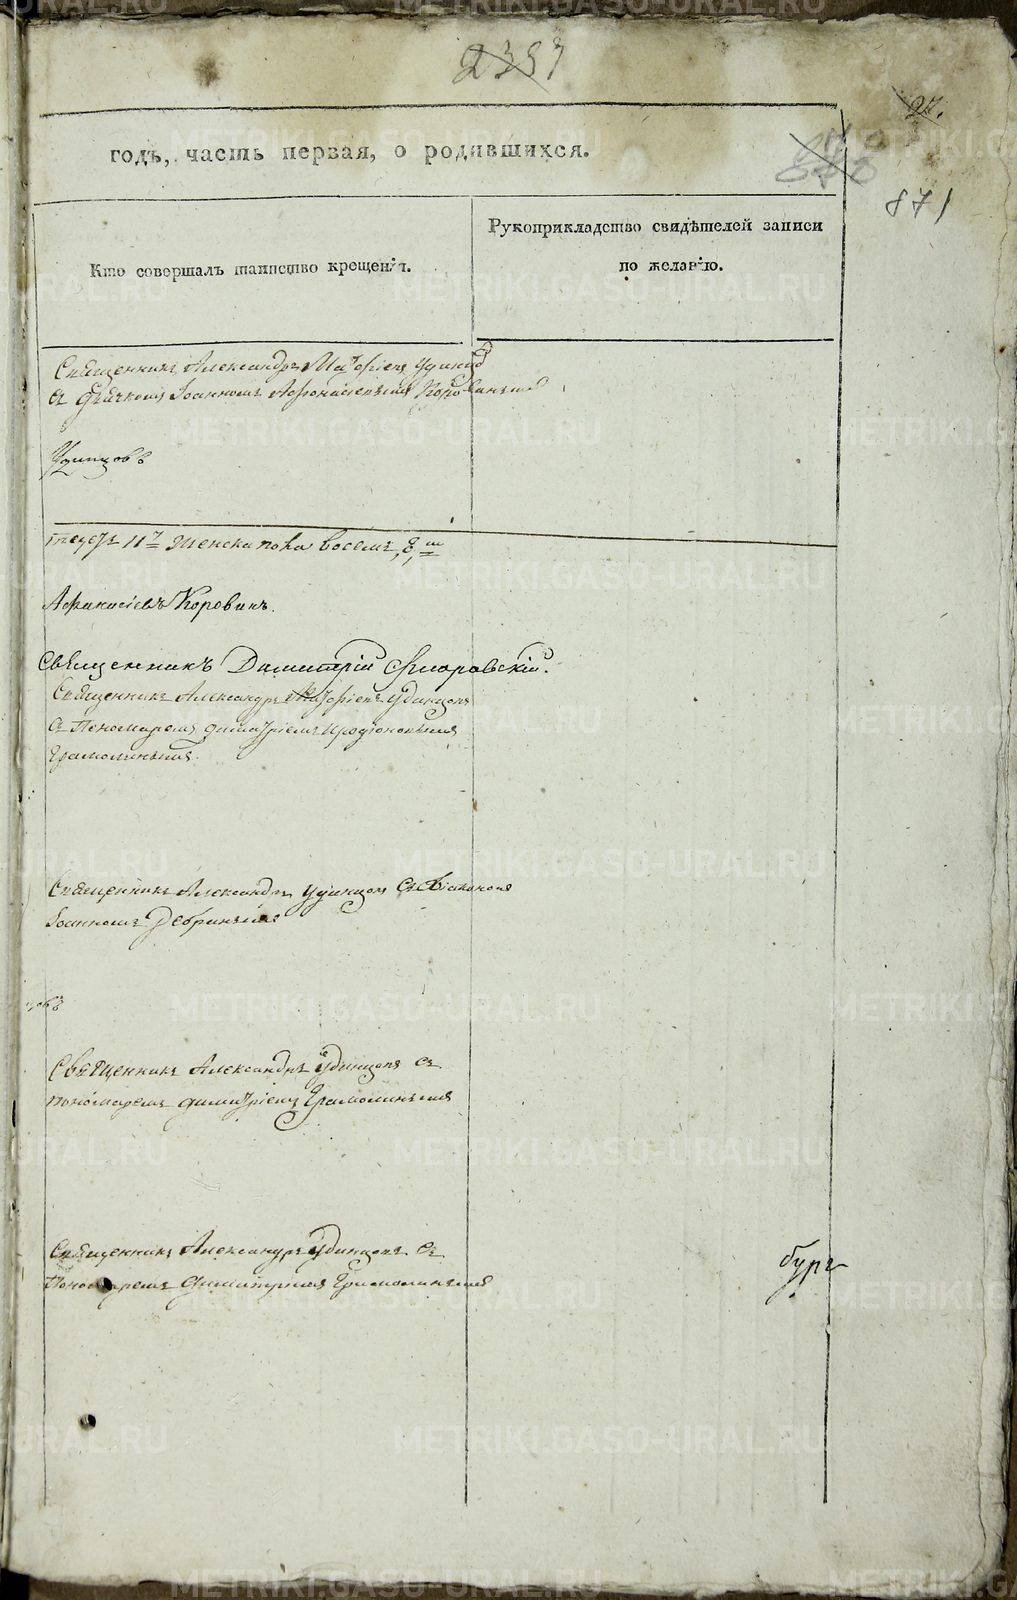 2357
27.
871
годъ, часть первая, о родившихся.
Кто совершалъ таинство крещенія.
Рукоприкладство свидѣтелей записи
по желанію.
Священникъ Александръ Удинцов
съ Іоанномъ Афонасіевымъ Коровинымъ
Удинцовъ
женска пола восемь, 8,
Афанасіевъ Коровинъ.
Священникъ Димитрій
Священникъ Александръ Удинцовъ
съ Пономаремъ Димитріемъ
Грамолинымъ.
Священникъ Александръ Удинцовъ съ Діакономъ
Іоанномъ Дебринымъ
цовъ
Священникъ Александръ Удинцовъ съ
пономаремъ Димитріемъ Грамолинымъ
Священникъ Александръ Удинцовъ съ
Пономаремъ Димитріемъ Грамолинымъ
бург
METRIKI.GASO-URAL.RU